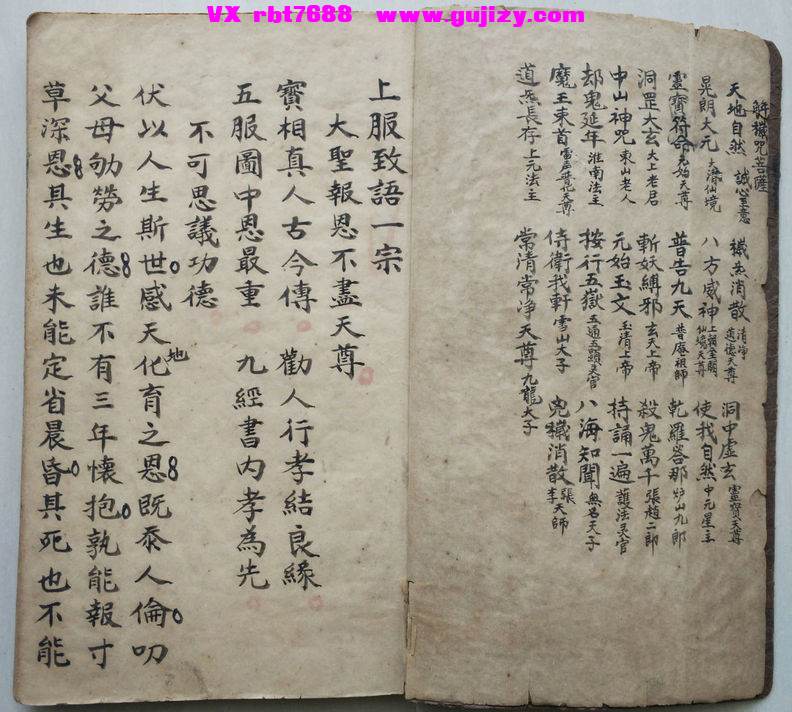 VX rbt7688 www.gujizy.com
解穢咒菩薩
天地自然 誠心至意 穢炁消散 清净道德天尊 洞中虛玄 靈寶天尊
晃朗大元 大濟仙境 八方威神 使我自然 中元星主
靈寶符命 元始天尊 普告九天 普庵祖師 乾羅答那 炉山九郎
洞罡大玄 太上老君 斬妖縛邪 玄天上帝 殺鬼萬千 張趙二郎
中山神咒 東山老人 元始玉文 玉清上帝 持誦一遍 護法灵官
却鬼延年 淮南法主 按行五嶽 五通五顕灵官 八海知聞 無名天子
魔王束首 雷声普化天尊 侍衛我軒 雪山大子 兇穢消散 張李天師
道炁長存 上元法主 常清常净天尊 九龍大子
上服致語一宗
大聖報恩不盡天尊
寶相真人古今傳 勸人行孝結良緣
五服圖中恩最重 九經書内孝為先
不可思議功德
伏以人生斯世感天地化育之恩既忝人倫叨
父母劬勞之德誰不有三年懷抱孰能報寸
草深恩其生也未能定省晨昏其死也不能